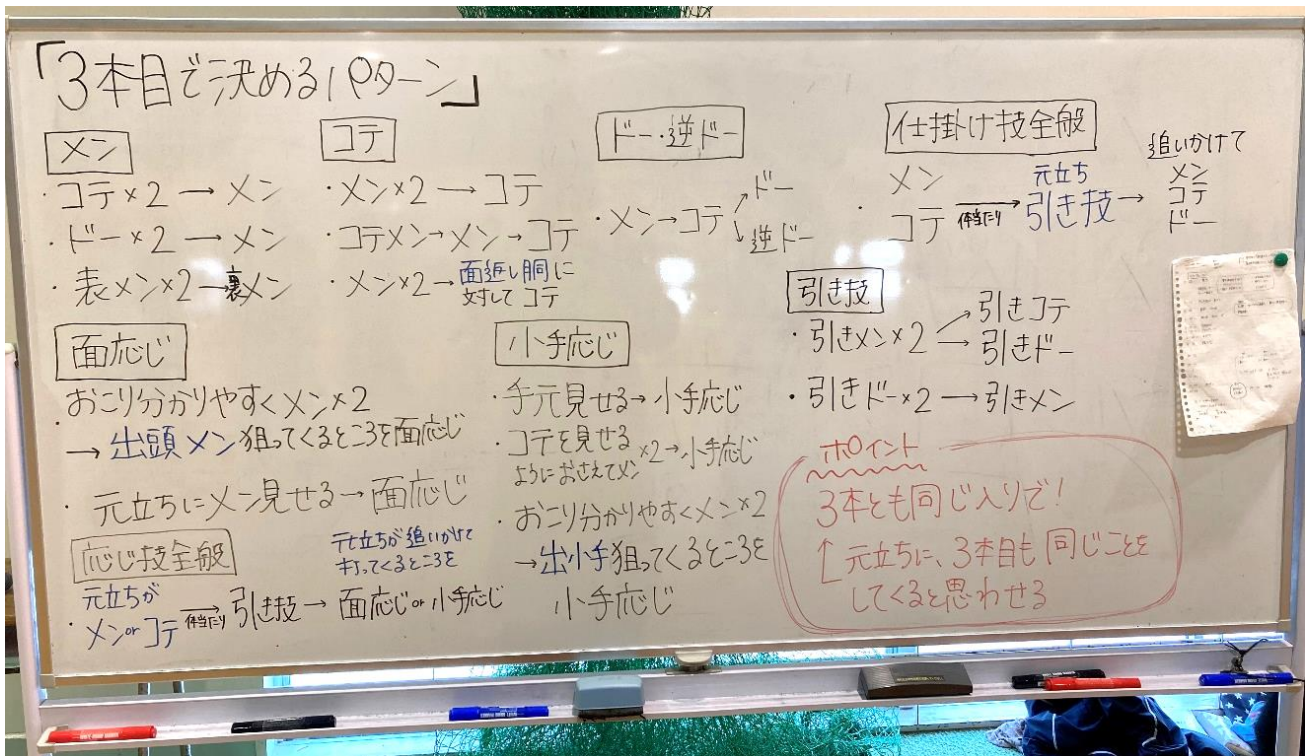 「3本目で決めるパターン」
メン
・コテ×2→メン
・ドー×2→メン
・表メン×2→裏メン
コテ
・メン×2→コテ
・コテメン→メン→コテ
・メン×2→面返し胴に
対してコテ
ドー・逆ドー
・メン→コテ→ドー
↓逆ドー
仕掛け技全般
・メン
コテ
体当たり→
元立ち
引き技→
追いかけて
メン
コテ
ドー
引き技
・引きメン×2→引きコテ
→引きドー
・引きドー×2→引きメン
面応じ
おこり分かりやすくメン×2
→出頭メン狙ってくるところを面応じ
・元立ちにメン見せる→面応じ
小手応じ
・手元見せる→小手応じ
・コテを見せる
ようにおさえてメン×2→小手応じ
・おこり分かりやすくメン×2
→出小手狙ってくるところを
小手応じ
応じ技全般
元立ちが
・メンorコテ
体当たり→
引き技→
元立ちが追いかけて
打ってくるところを
面応じor小手応じ
ポイント
3本とも同じ入りで!
↑元立ちに、3本目も同じことを
してくると思わせる